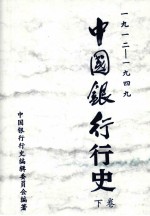 一九一二—一九四九
中國銀行行史
下卷
中国银行行史编辑委员会编著